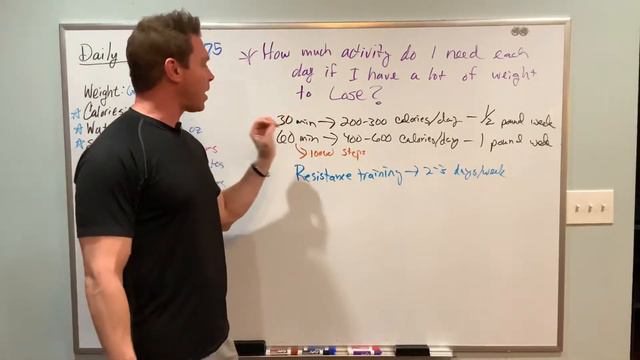 Daily 75
Weight:
☆ Calories
☆ Wat oz
☆ S
* How much activity do I need each
day if I have a lot of weight
to Lose?
30 min → 200-300 calories/day - 1/2 pound week
60 min → 400-600 calories/day - 1 pound week
↳ 10000 steps
Resistance training → 2-3 days/week